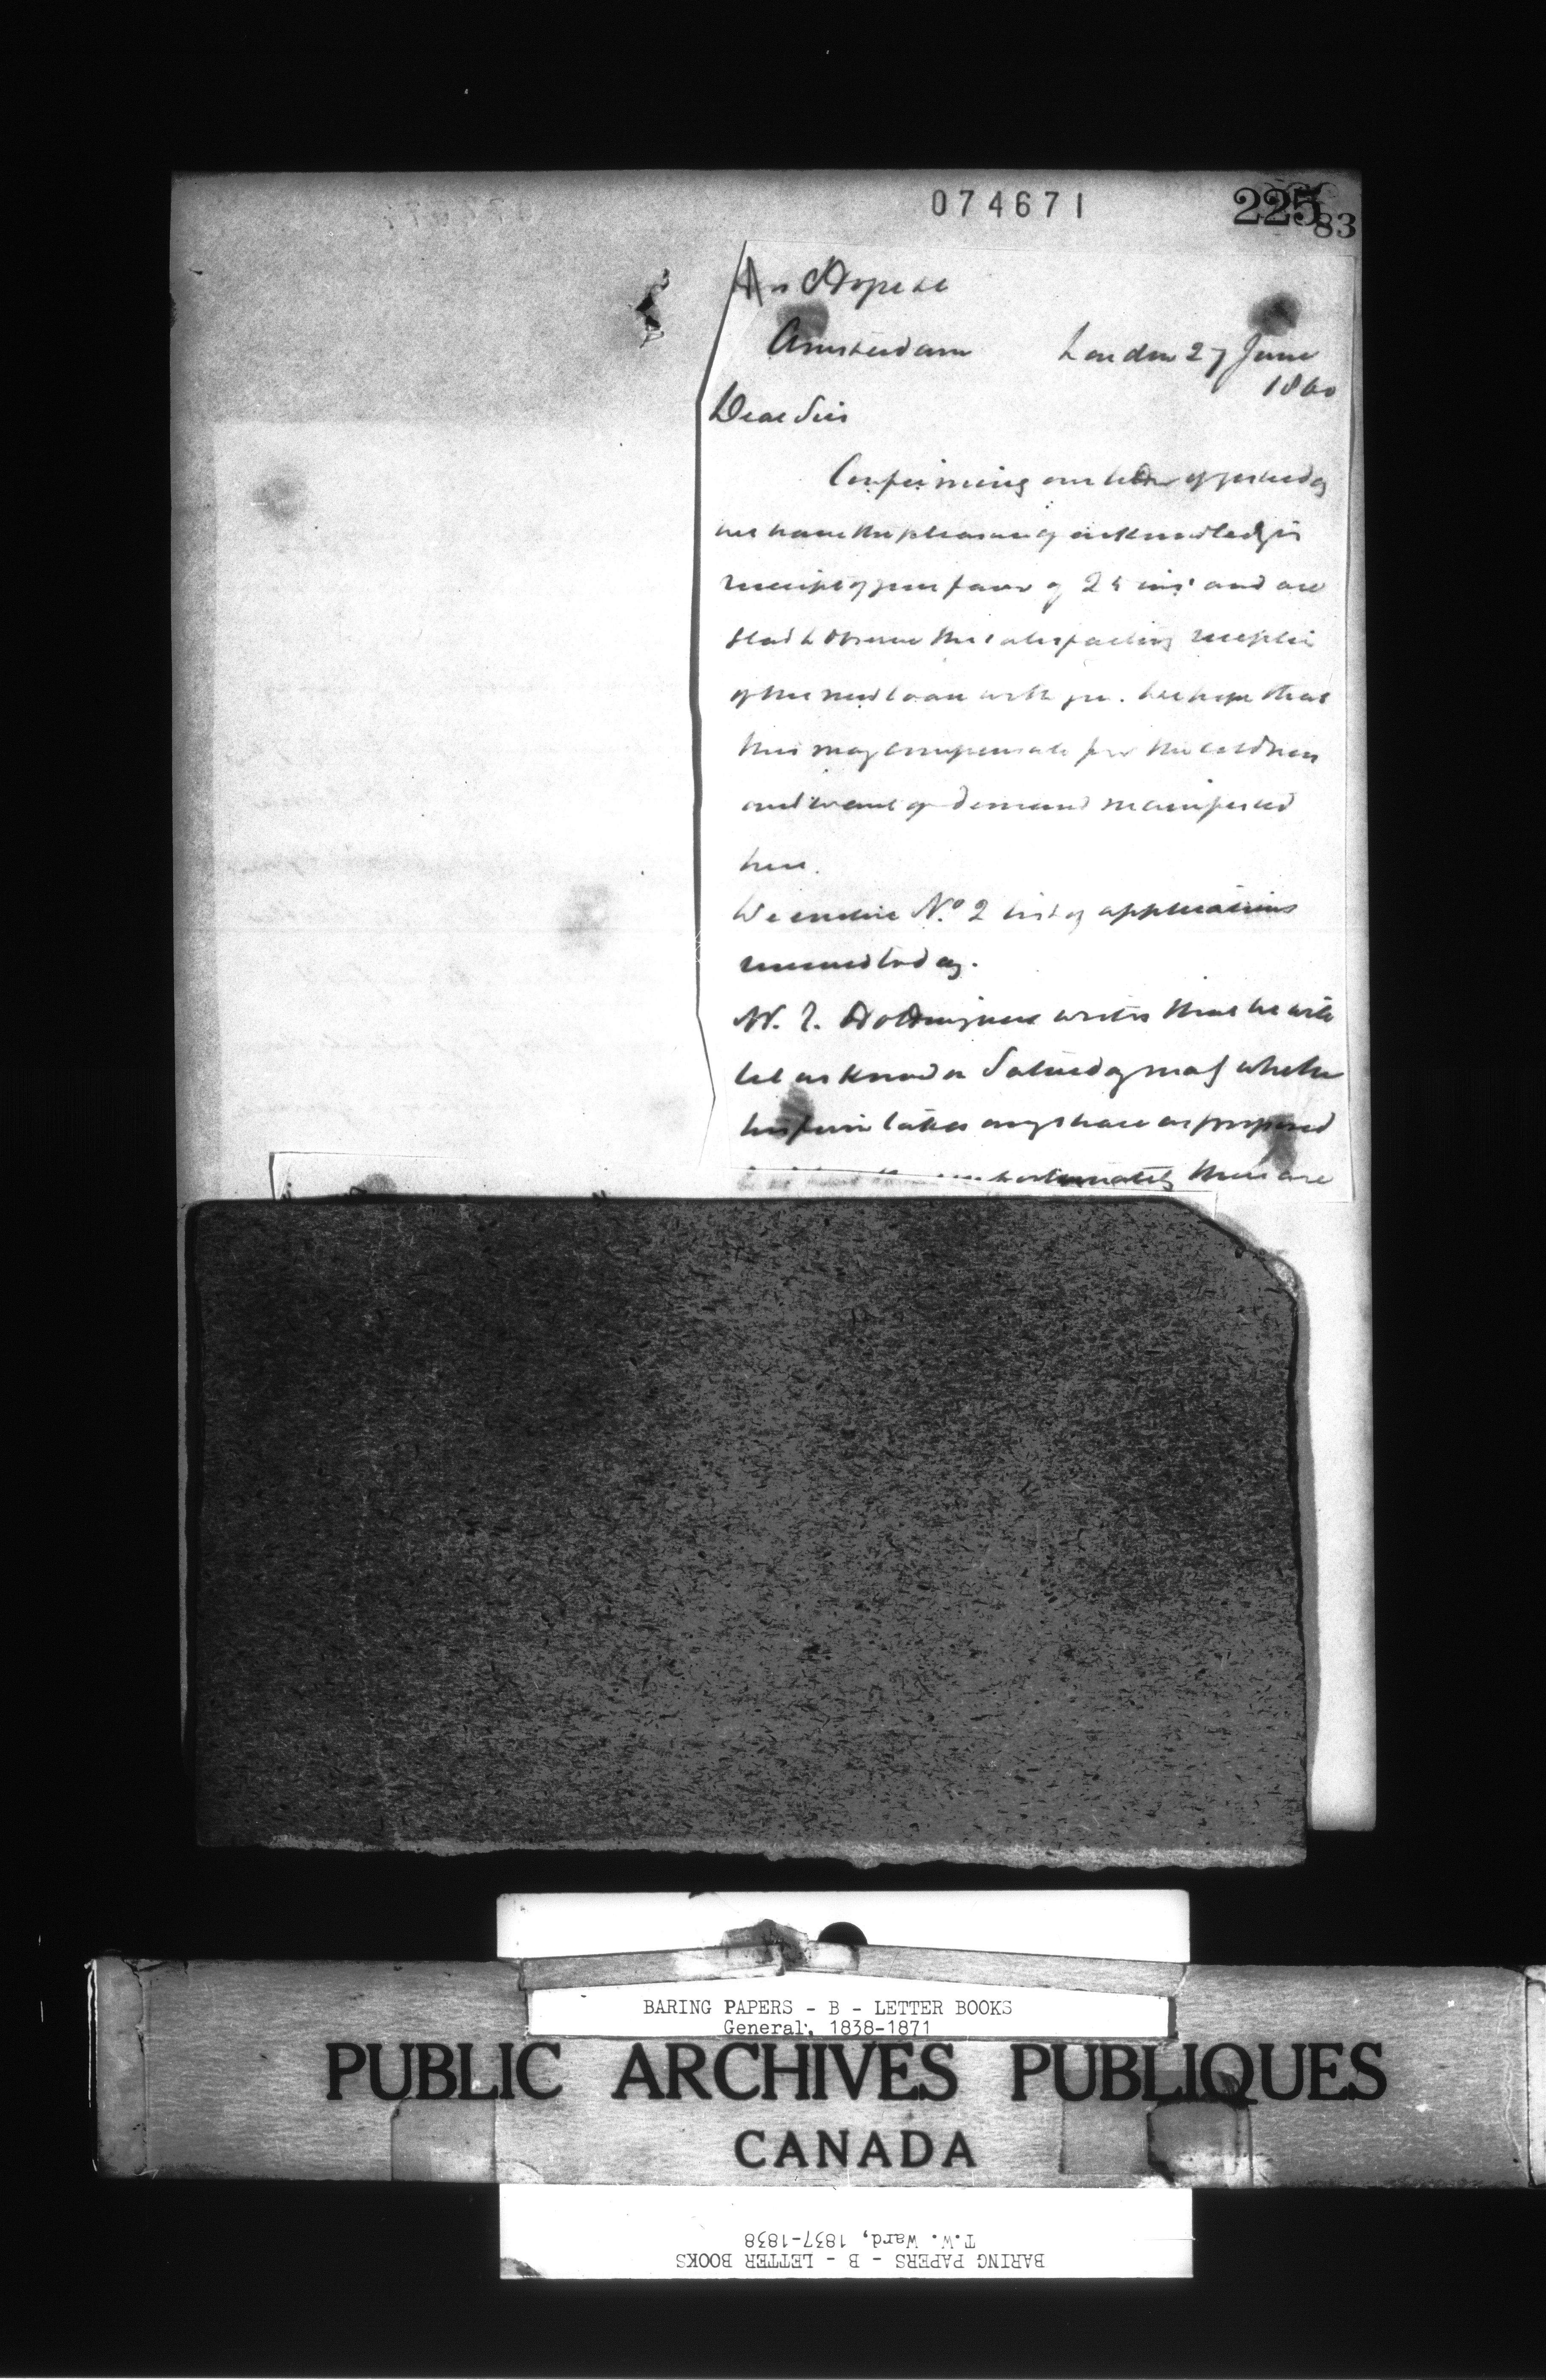 074671
22583
Amsterdam London 27 June
1860
Dear Sirs
Confirming our letter of yesterday
we have the pleasure of acknowledging
receipt of your favor of 25 inst and are
glad to observe the satisfactory reception
of the new loan with you. We hope that
this may compensate for the coldness
and want of demand manifested
here.
We enclose No. 2 list of applications
received today.
writes that he will
let us know on Saturday next whether
his firm takes any share as proposed
unfortunately there are
BARING PAPERS - B - LETTER BOOKS
General, 1838-1871
PUBLIC ARCHIVES PUBLIQUES
CANADA
BARING PAPERS - B - LETTER BOOKS
T.W. Ward, 1837-1838